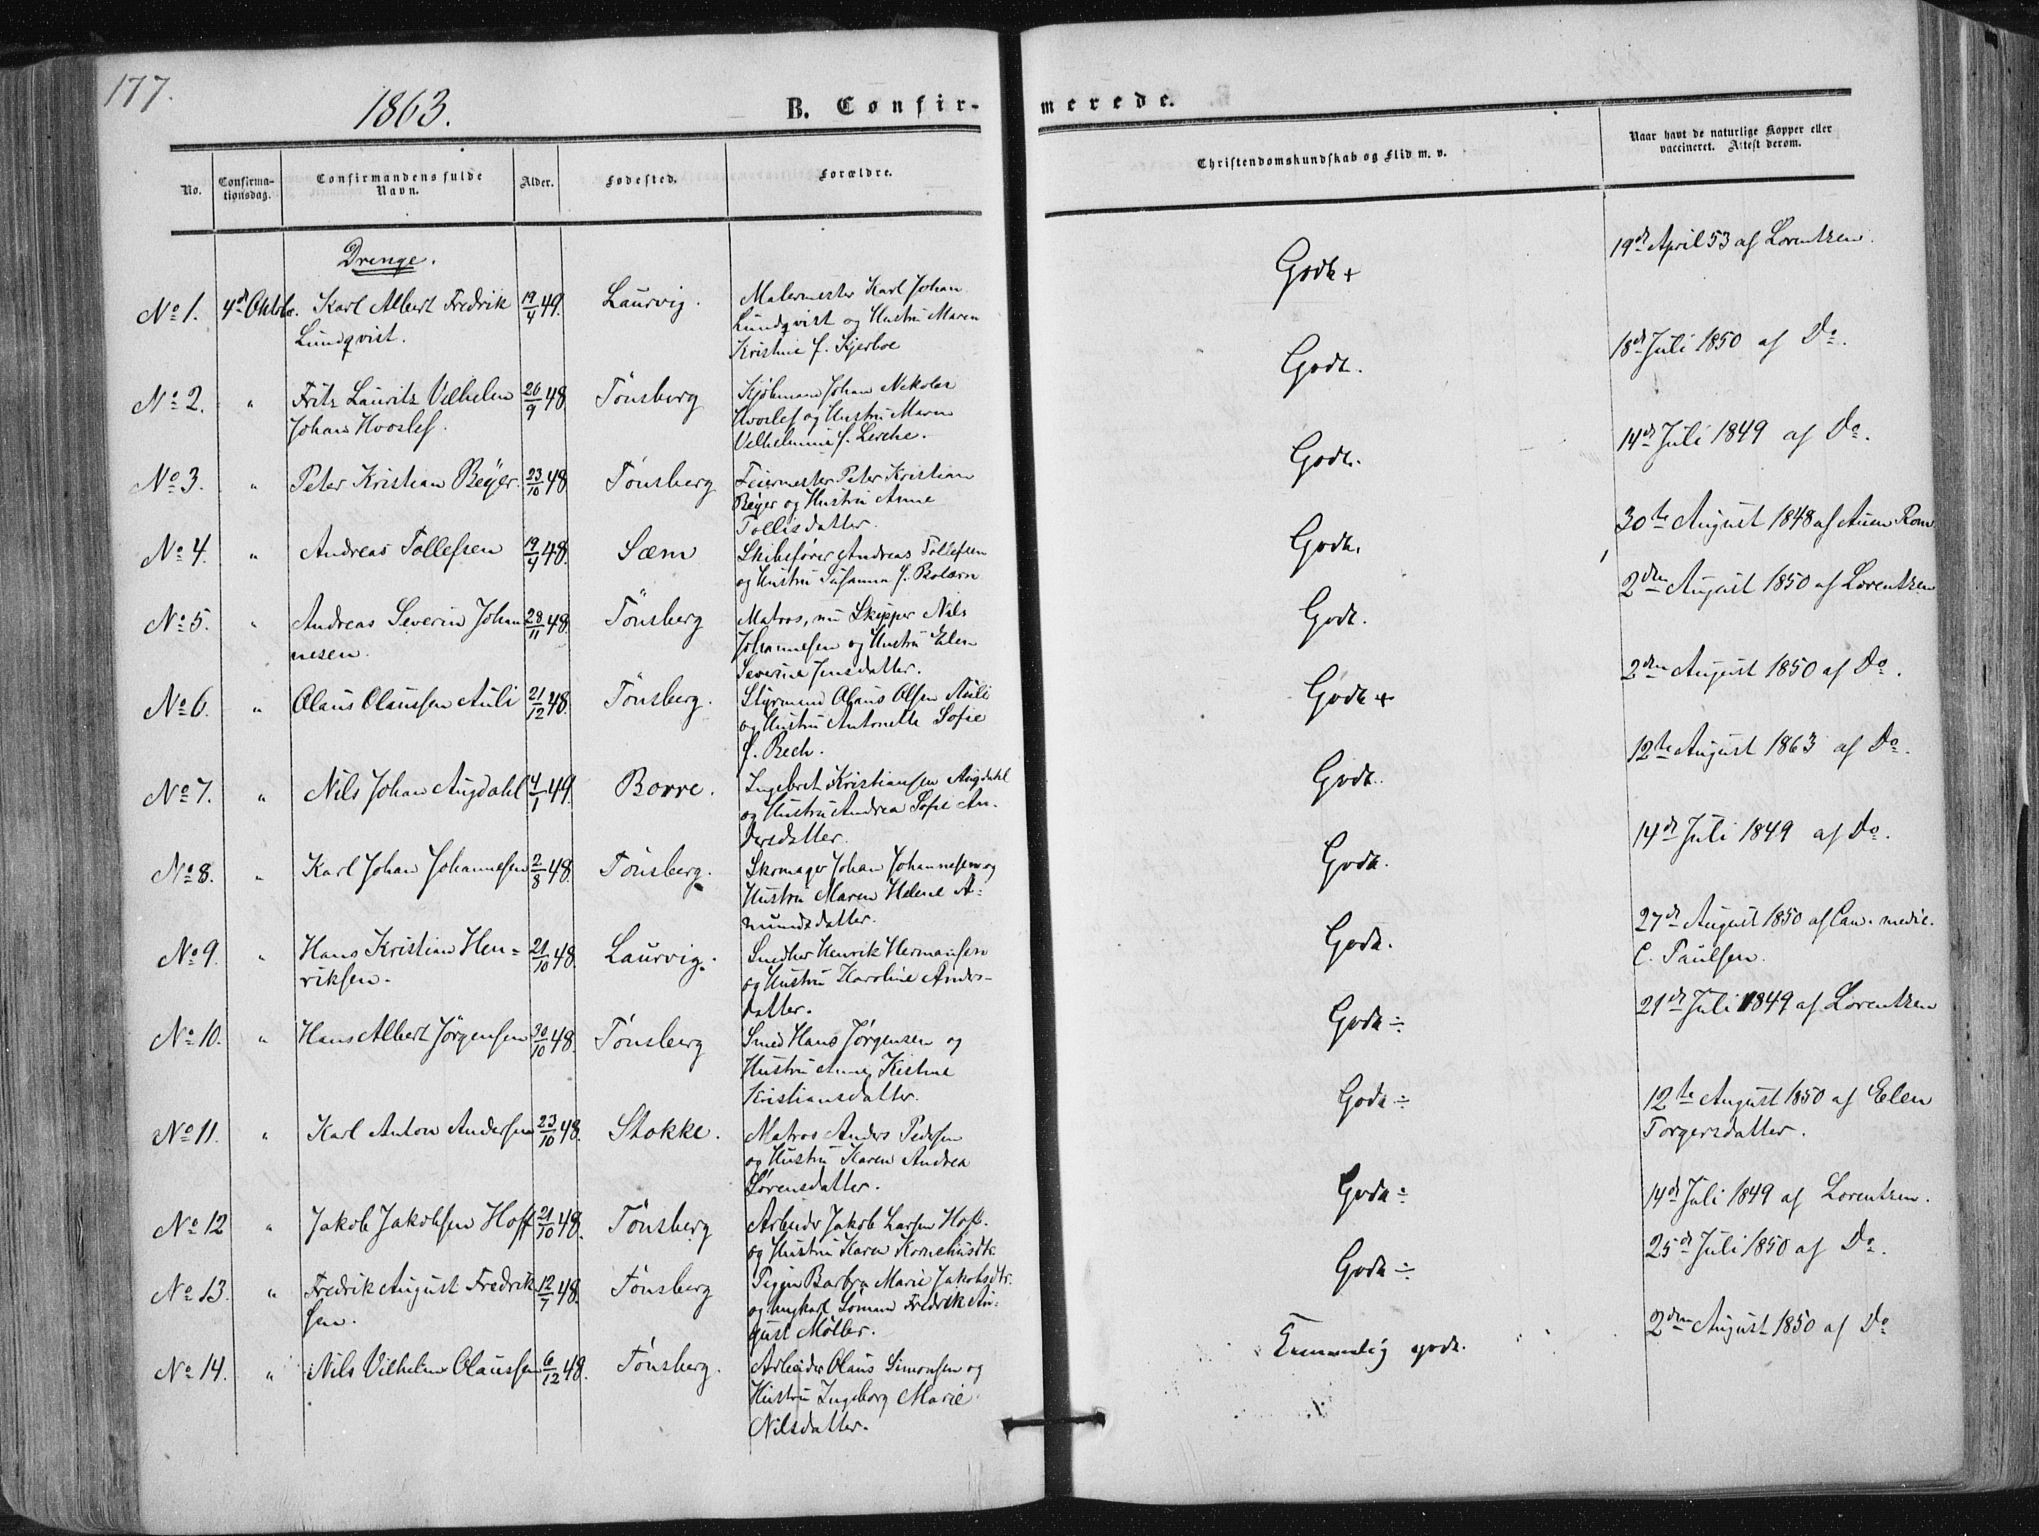 177.
1863.
B. Confir-
merede.
No.
Confirma-
tionsdag.
Confirmandens fulde
Navn.
Alder.
Fødested.
Forældre.
Christendomskundskab og Flid m. v.
Naar havt de naturlige Kopper eller
vaccineret. Attest derom.
Drenge.
No 1. 4de Oktob. Karl Albert Fredrik 19/4 49. Laurvig. Malermester Karl Johan Godt + 19de April 53 af Lorentzen.
Lundqvist. Lundqvist og Hustru Maren
Kristine f. Kjerboe
No 2. " Fritz Lauritz Vilhelm 26/9 48. Tönsberg Kjöbmand Johan Nikolai Godt. 18de Juli 1850 af Do.
Johan Hvoslef. Hvoslef og Hustru Maren
Vilhelmine f. Lerche.
No 3. " Peter Kristian Beyer. 23/10 48. Tönsberg Feiermester Peter Kristian Godt. 14de Juli 1849 af Do.
Beyer og Hustru Anne
Tollisdatter.
No 4. " Andreas Tollefsen 19/9 48. Sæm Skibsfører Andreas Tollefsen Godt. 30te August 1848 af Rom
og Hustru Susanna f. Bolærn
No 5. " Andreas Severin Johan 28/11 48. Tönsberg Matros, nu Skipper Nils Godt. 2den August 1850 af Lorentzen
nesen. Johannesen og Hustru Elen
Severine Jensdatter.
No 6. " Olaus Olaussen Auli 21/12 48. Tönsberg. Styrmand Olaus Olsen Auli Godt + 2den August 1850 af Do.
og Hustru Antonette Sofie
f. Bech.
No 7. " Nils Johan Augdahl 4/1 49. Borre. Ingebret Kristiansen Augdahl Godt. 12te August 1863 af Do.
og Hustru Andrea Sofie An-
dersdatter.
No 8. " Karl Johan Johannesen 2/8 48. Tönsberg. Skomager Johan Johannesen og Godt. 14de Juli 1849 af Do.
Hustru Maren Helene A-
mundsdatter.
No 9. " Hans Kristian Hen- 21/10 48. Laurvig. Henrik Hermansen Godt. 27de August 1850 af Can. medic.
riksen. og Hustru Karoline Anders- C. Paulsen.
datter.
No 10. " Hans Albert Jørgensen 30/10 48. Tönsberg Smed Hans Jørgensen og Godt ÷ 21de Juli 1849 af Lorentzen
Hustru Anne Kistine
Kristiansdatter.
No 11. " Karl Anton Andersen 23/10 48. Stokke. Matros Anders Pedersen Godt ÷ 12te August 1850 af Elen
og Hustru Karen Andrea Torgersdatter.
Sørensdatter.
No 12 " Jakob Jakobsen Hoff 21/10 48. Tönsberg Arbeider Jakob Larsen Hoff. Godt ÷ 14de Juli 1849 af Lorentzen.
og Hustru Karen
No 13. " Fredrik August Fredrik 12/7 48. Tönsberg Pigen Barbra Marie Jakobsdtr. Godt ÷ 25de Juli 1850 af Do.
sen. og Ungkarl Sömand Fredrik Au-
gust Møller.
No 14. " Nils Vilhelm Olaussen 6/12 48. Tönsberg. Arbeider Olaus Simonsen og Temmelig godt. 2den August 1850 af Do
Hustru Ingeborg Marie
Nilsdatter.